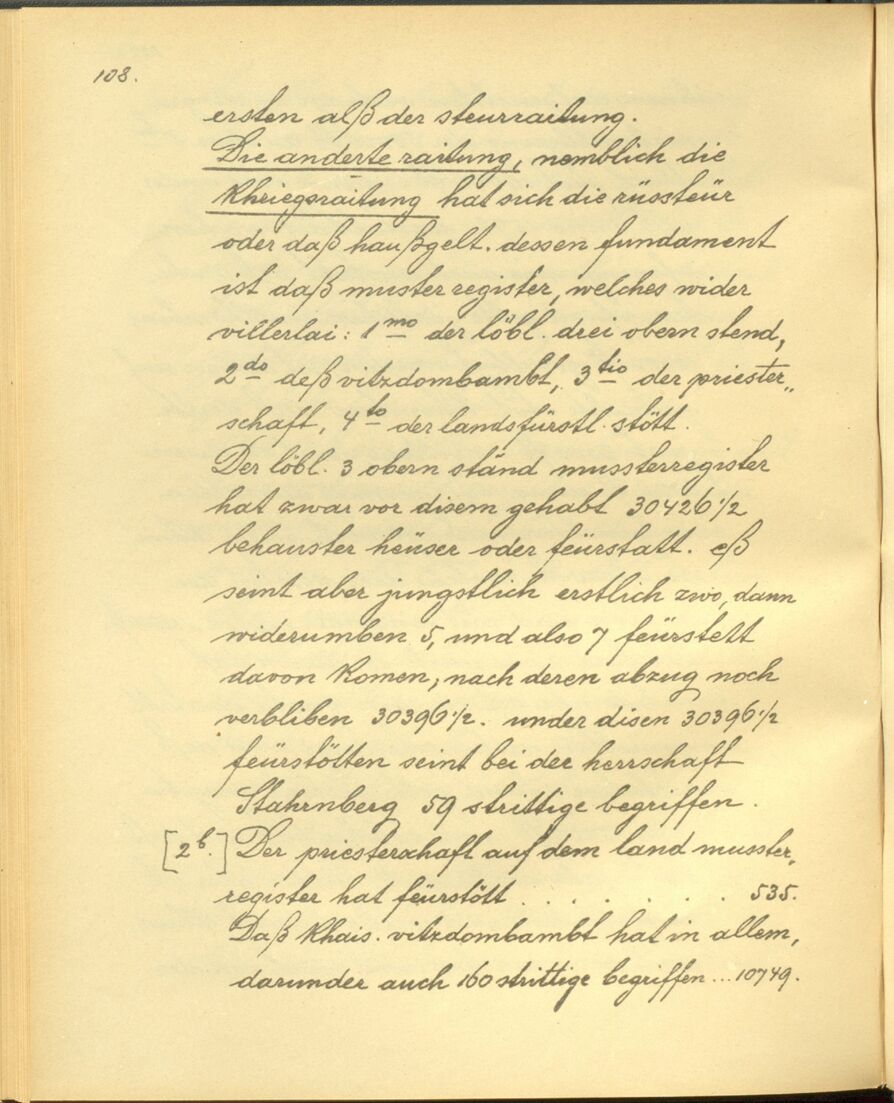 108.
ersten alß der steurraitung.
Die anderte raitung, nemblich die
Khriegsraitung hat sich die rüssteür
oder daß haußgelt. dessen fundament
ist daß muster register, welches wider
villerlai: 1mo der löbl. drei obern stend,
2do deß vitzdombambt, 3tio der priester„
schaft, 4to der landsfürstl. stött.
Der löbl. 3 obern ständ mussterregister
hat zwar vor disem gehabt 30426½
behauster heüser oder feürstatt. eß
seint aber jungstlich erstlich zwo, dann
widerumben 5, und also 7 feürstett
davon komen, nach deren abzug noch
verbliben 30396½. under disen 30396½
feürstötten seint bei der herrschaft
Stahrnberg 59 strittige begriffen.
[2b.] Der priesterschaft auf dem land musster„
register hat feürstött . . . . . . . 535.
Daß Khais. vitzdombambt hat in allem,
darunder auch 160 strittige begriffen ... 10749.